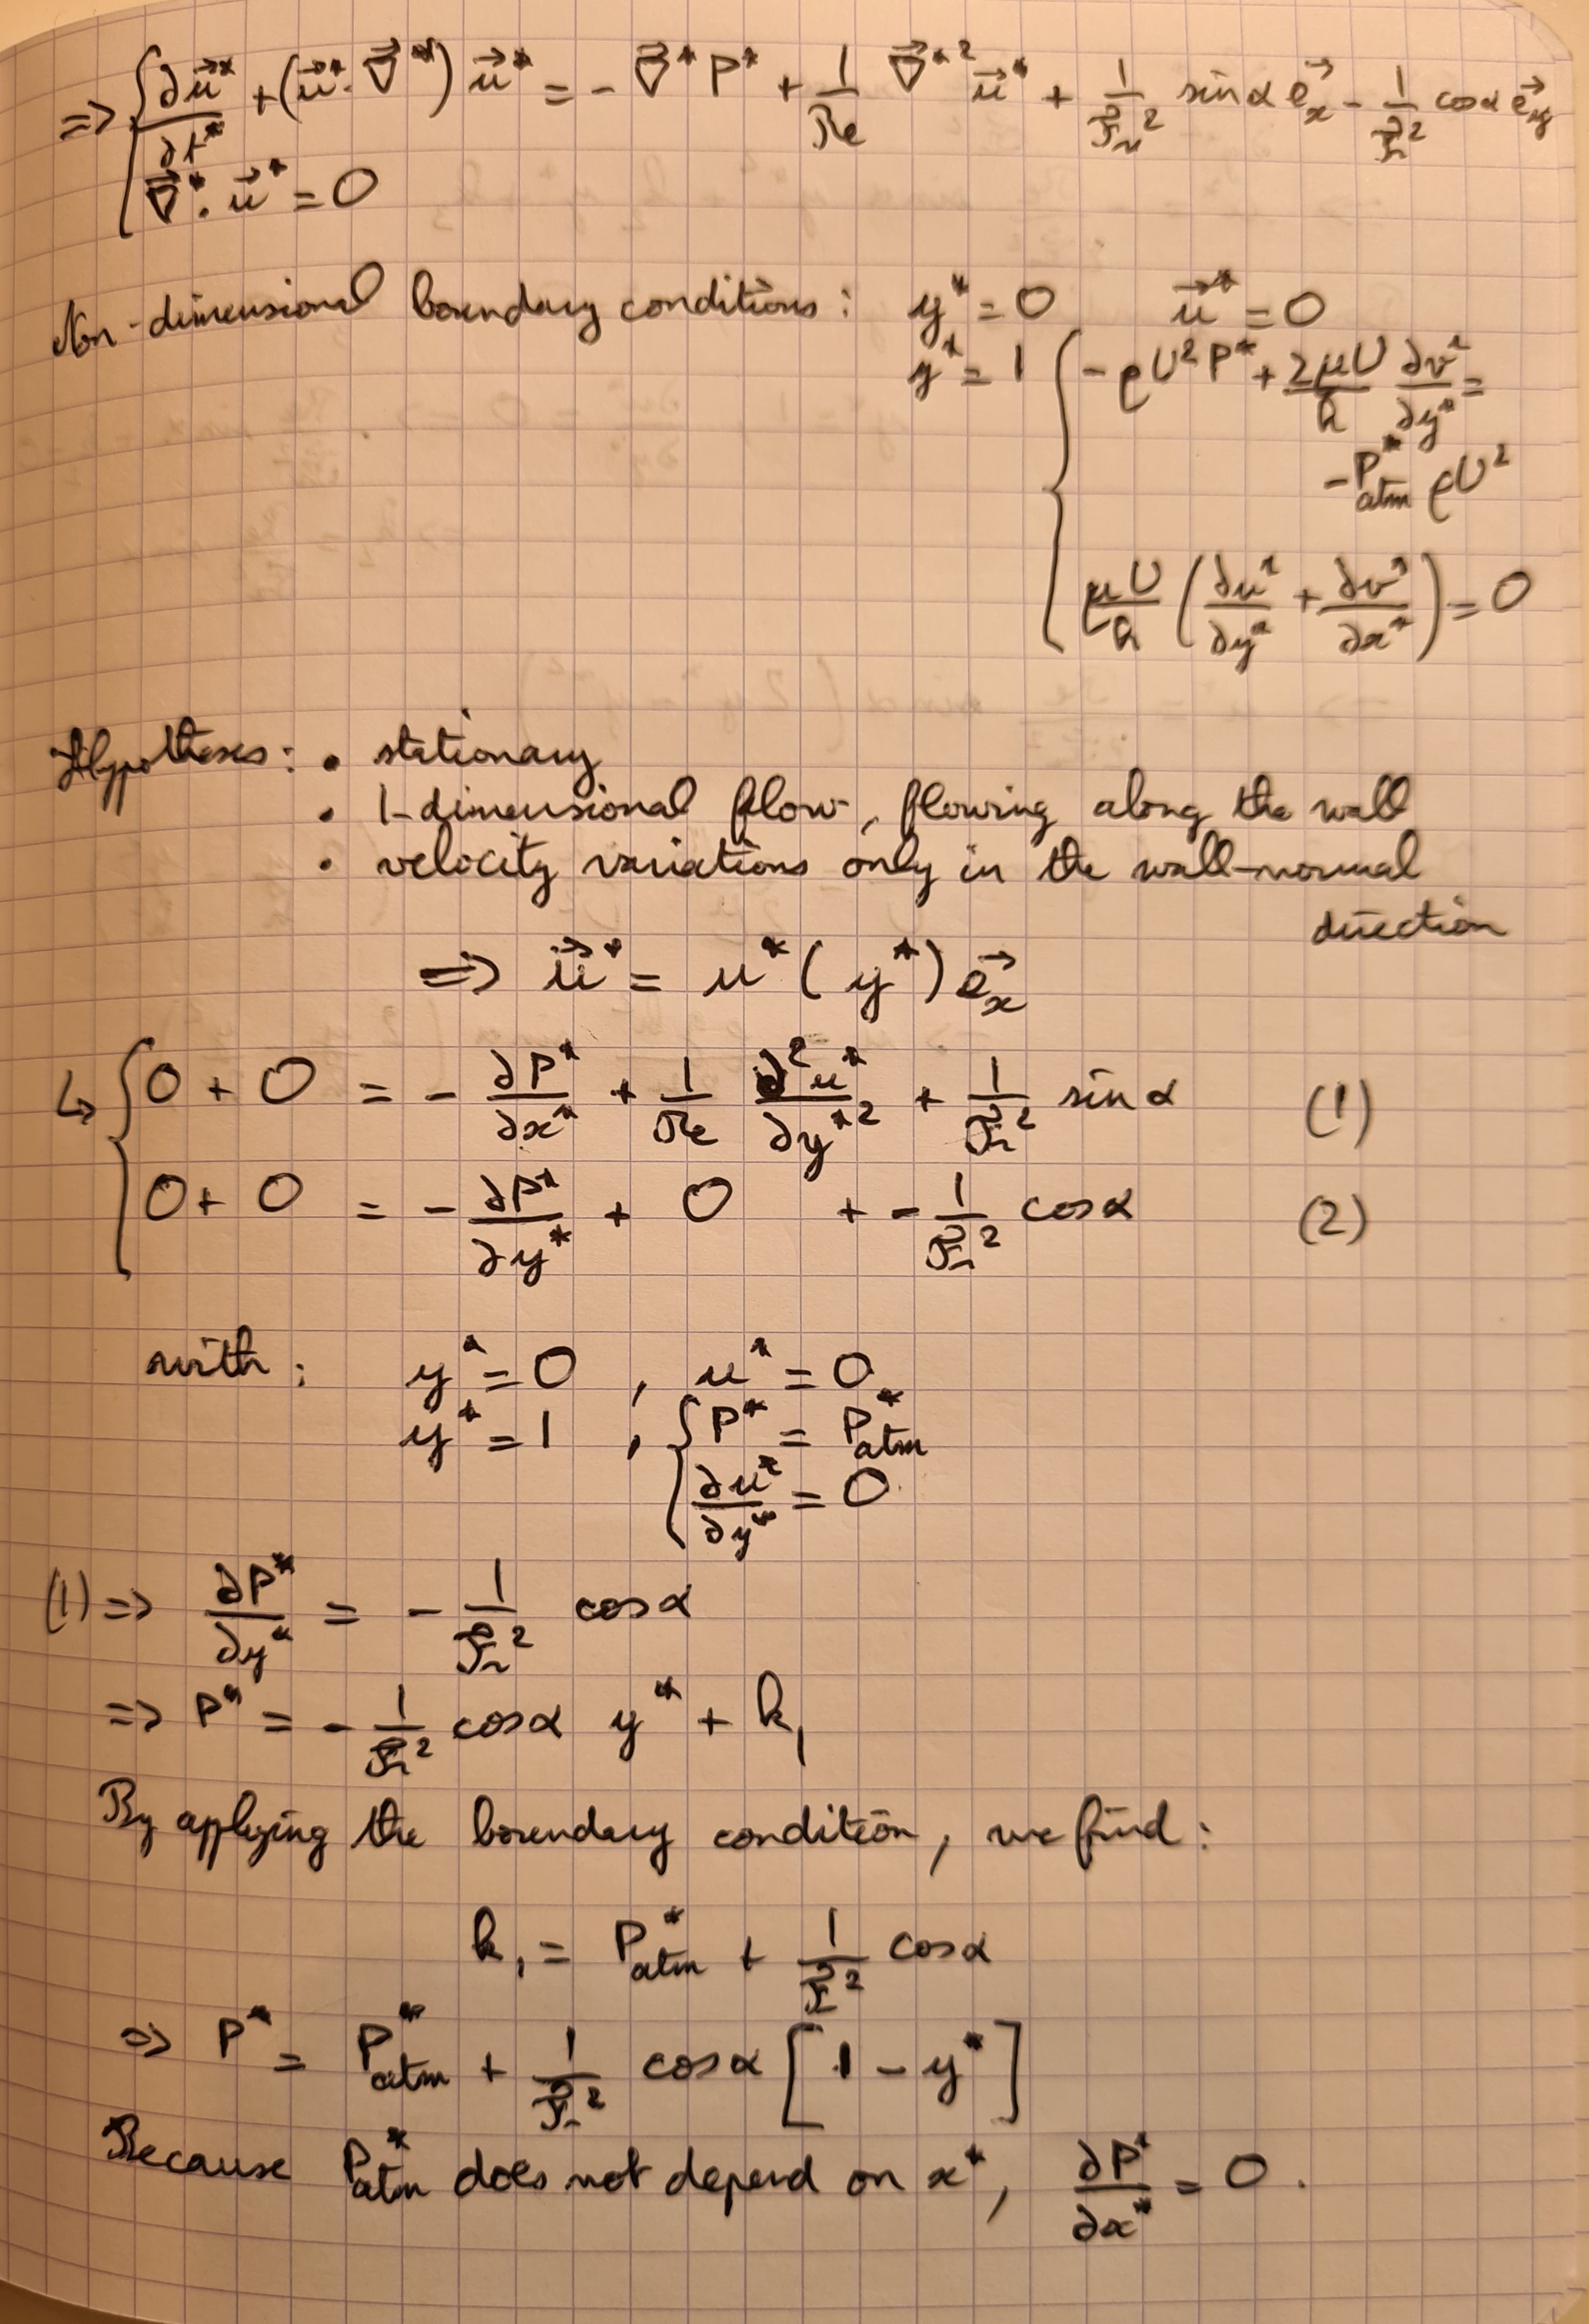 => { ∂u⃗*/∂t* + (u⃗*.∇⃗*) u⃗* = - ∇⃗* P* + 1/Re ∇⃗*² u⃗* + 1/Fr² sinα e⃗x - 1/Fr² cosα e⃗y
∇⃗* . u⃗* = 0
Non-dimensional boundary conditions : y* = 0 u⃗* = 0
y* = 1 { - ρU² P* + 2μU/h ∂v*/∂y* =
- P*atm ρU²
μU/h ( ∂u*/∂y* + ∂v*/∂x* ) = 0
Hypotheses : • stationary
• 1-dimensional flow, flowing along the wall
• velocity variations only in the wall-normal
direction
=> u⃗* = u* ( y* ) e⃗x
↳ { 0 + 0 = - ∂P*/∂x* + 1/Re ∂²u*/∂y*² + 1/Fr² sinα (1)
0 + 0 = - ∂P*/∂y* + 0 + - 1/Fr² cosα (2)
with : y* = 0 , u* = 0
y* = 1 , { P* = P*atm
∂u*/∂y* = 0
(1) => ∂P*/∂y* = - 1/Fr² cosα
=> P* = - 1/Fr² cosα y* + k₁
By applying the boundary condition, we find :
k₁ = P*atm + 1/Fr² cosα
=> P* = P*atm + 1/Fr² cosα [ 1 - y* ]
Because P*atm does not depend on x*, ∂P*/∂x* = 0 .